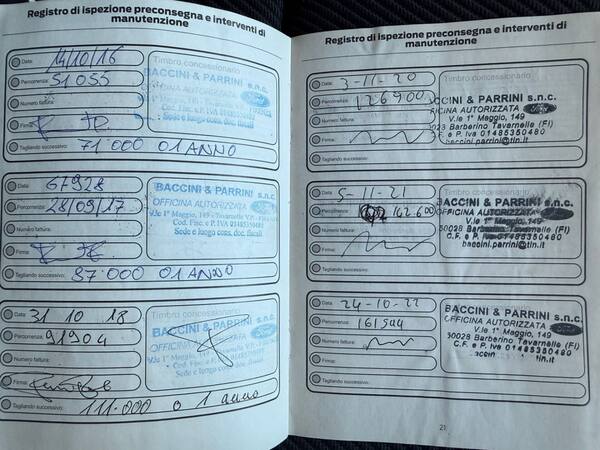 Registro di ispezione preconsegna e interventi di
manutenzione
Data: 14/10/16
Percorrenza: 51055
Numero fattura:
Firma:
Tagliando successivo: 71000 O 1 ANNO
Timbro concessionario
BACCINI & PARRINI s.n.c.
OFFICINA AUTORIZZATA Ford
V.le 1° Maggio, 149
Cod. Fisc. e P. IVA
Sede e luogo cons. doc. fiscali
Data: 67928
Percorrenza: 28/09/17
Numero fattura:
Firma:
Tagliando successivo: 87000 O 1 ANNO
Timbro concessionario
BACCINI & PARRINI s.n.c.
OFFICINA AUTORIZZATA Ford
V.le 1° Maggio, 149 - Tavarnelle V.P.
Cod. Fisc. e P. IVA 01485350480
Sede e luogo cons. doc. fiscali
Data: 31 10 18
Percorrenza: 91904
Numero fattura:
Firma:
Tagliando successivo: 111.000 o 1 anno
Timbro concessionario
BACCINI & PARRINI s.n.c.
OFFICINA AUTORIZZATA Ford
V.le 1° Maggio, 149 - Tavarnelle
Cod. Fisc. e P. IVA
Sede e luogo cons. doc. fiscali
Registro di ispezione preconsegna e interventi di
manutenzione
Data: 3-11-20
Percorrenza: 126900
Numero fattura:
Firma:
Tagliando successivo:
Timbro concessionario
BACCINI & PARRINI s.n.c.
OFFICINA AUTORIZZATA Ford
V.le 1° Maggio, 149
50028 Barberino Tavarnelle (FI)
C.F. e P. Iva 01485350480
baccini.parrini@tin.it
Data: 5-11-21
Percorrenza: 142.600
Numero fattura:
Firma:
Tagliando successivo:
Timbro concessionario
BACCINI & PARRINI s.n.c.
OFFICINA AUTORIZZATA Ford
V.le 1° Maggio, 149
50028 Barberino Tavarnelle (FI)
C.F. e P. Iva 01485350480
baccini.parrini@tin.it
Data: 24-10-22
Percorrenza: 161544
Numero fattura:
Firma:
Tagliando successivo:
Timbro concessionario
BACCINI & PARRINI s.n.c.
OFFICINA AUTORIZZATA Ford
V.le 1° Maggio, 149
50028 Barberino Tavarnelle (FI)
C.F. e P. Iva 01485350480
tin.it
21